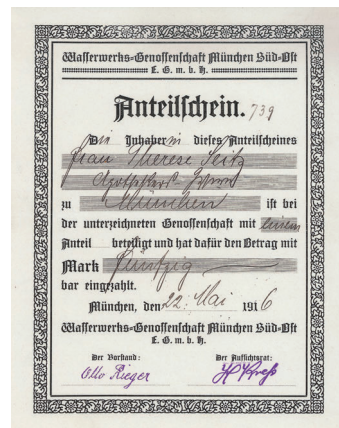 Wasserwerks-Genossenschaft München Süd-Ost
E. G. m. b. H.
Anteilschein. 739
Die Inhaberin dieses Anteilscheines
Frau Therese Seitz
zu München ist bei
der unterzeichneten Genossenschaft mit einem
Anteil beteiligt und hat dafür den Betrag mit
Mark Fünfzig
bar eingezahlt.
München, den 22. Mai 1916
Wasserwerks-Genossenschaft München Süd-Ost
E. G. m. b. H.
Der Vorstand: Der Aufsichtsrat:
Otto Rieger